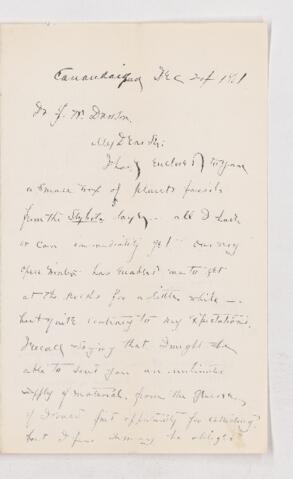 Canandaigua Dec 24 1881
Dr J. W. Dawson
My Dear Sir:
I have enclosed to you
a small box of plants fossils
from the Styliola layer — all I have
or can immediately get! our very
open winter has enabled me to get
at the rocks for a little while —
but quite contrary to my expectations.
I recall saying that I might be
able to send you an unlimited
supply of material, from the
of first opportunity for collecting,
but I fear I may be obliged